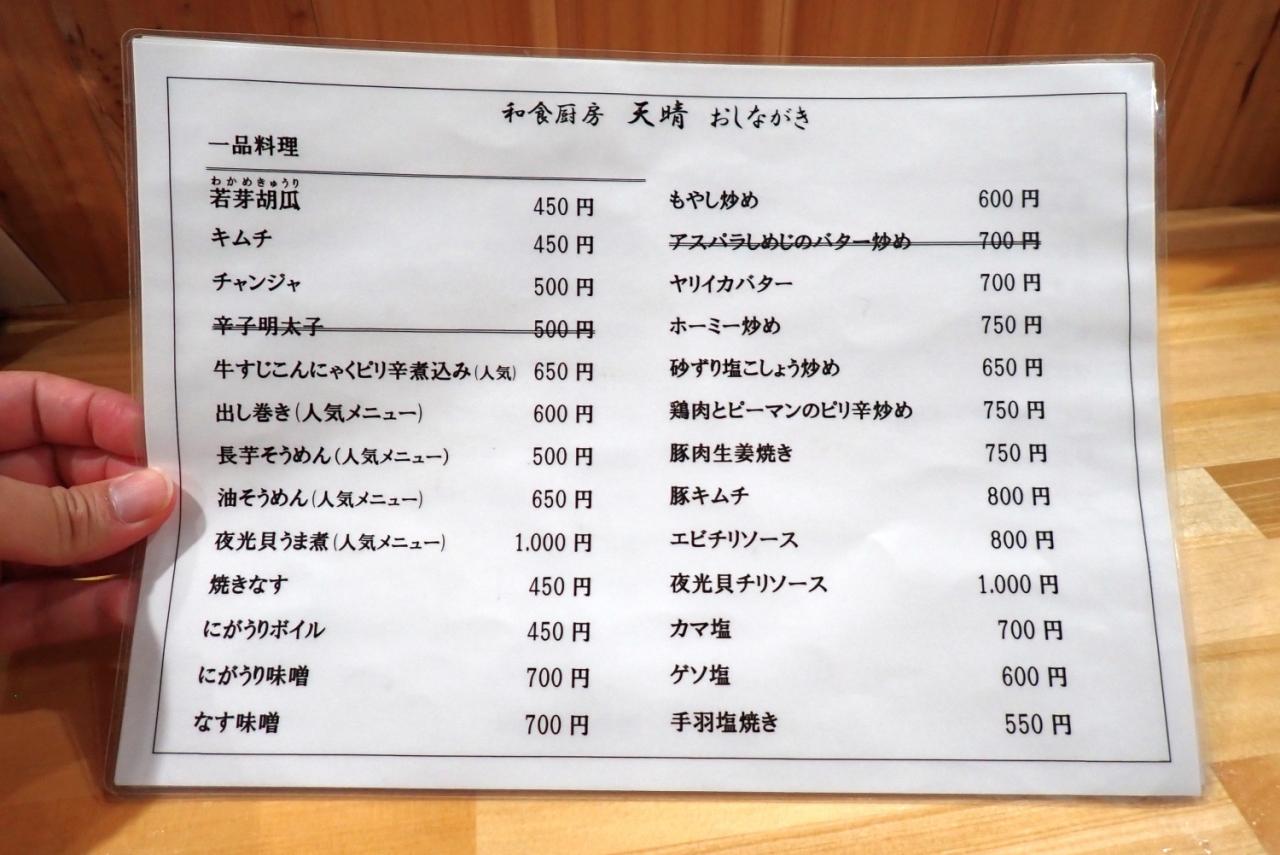 和食厨房 天晴 おしながき
一品料理
わかめきゅうり
若芽胡瓜 450 円
キムチ 450 円
チャンジャ 500 円
辛子明太子 500 円
牛すじこんにゃくピリ辛煮込み(人気) 650 円
出し巻き(人気メニュー) 600 円
長芋そうめん(人気メニュー) 500 円
油そうめん(人気メニュー) 650 円
夜光貝うま煮(人気メニュー) 1.000 円
焼きなす 450 円
にがうりボイル 450 円
にがうり味噌 700 円
なす味噌 700 円
もやし炒め 600 円
アスパラしめじのバター炒め 700 円
ヤリイカバター 700 円
ホーミー炒め 750 円
砂ずり塩こしょう炒め 650 円
鶏肉とピーマンのピリ辛炒め 750 円
豚肉生姜焼き 750 円
豚キムチ 800 円
エビチリソース 800 円
夜光貝チリソース 1.000 円
カマ塩 700 円
ゲソ塩 600 円
手羽塩焼き 550 円